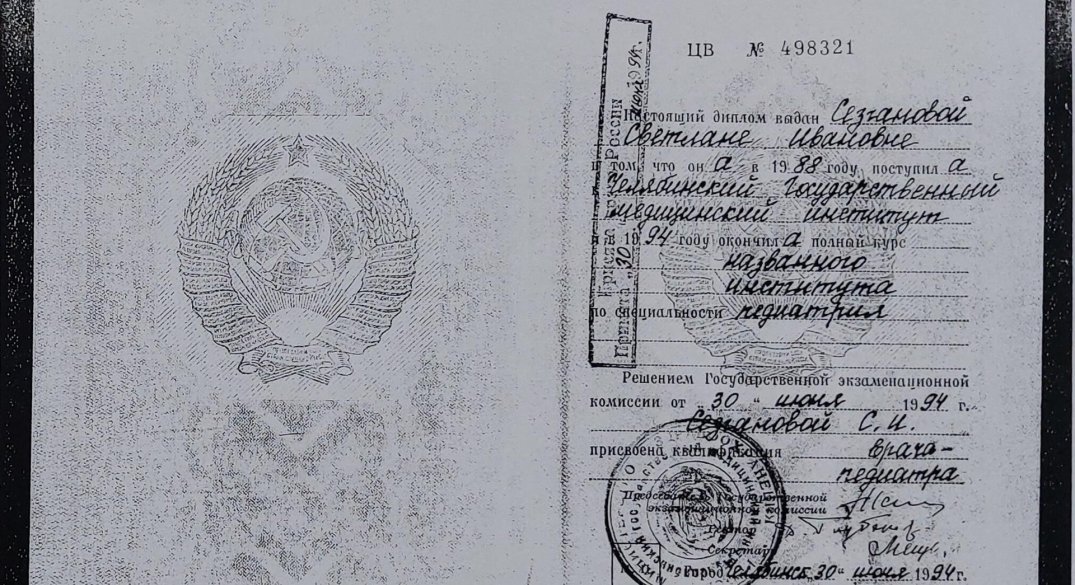 ЦВ № 498321
Настоящий диплом выдан Сезгановой
Светлане Ивановне
в том, что он а в 1988 году поступил а
в Челябинский Государственный
медицинский институт
и в 1994 году окончил а полный курс
названного
института
по специальности педиатрия
Решением Государственной экзаменационной
комиссии от „30“ июня 1994 г.
С. И.
присвоена квалификация врача-
педиатра
Председатель Государственной
экзаменационной комиссии
Ректор
Секретарь
Город Челябинск 30“ июня 1994г.
России
Принята „30 июня 1994г.